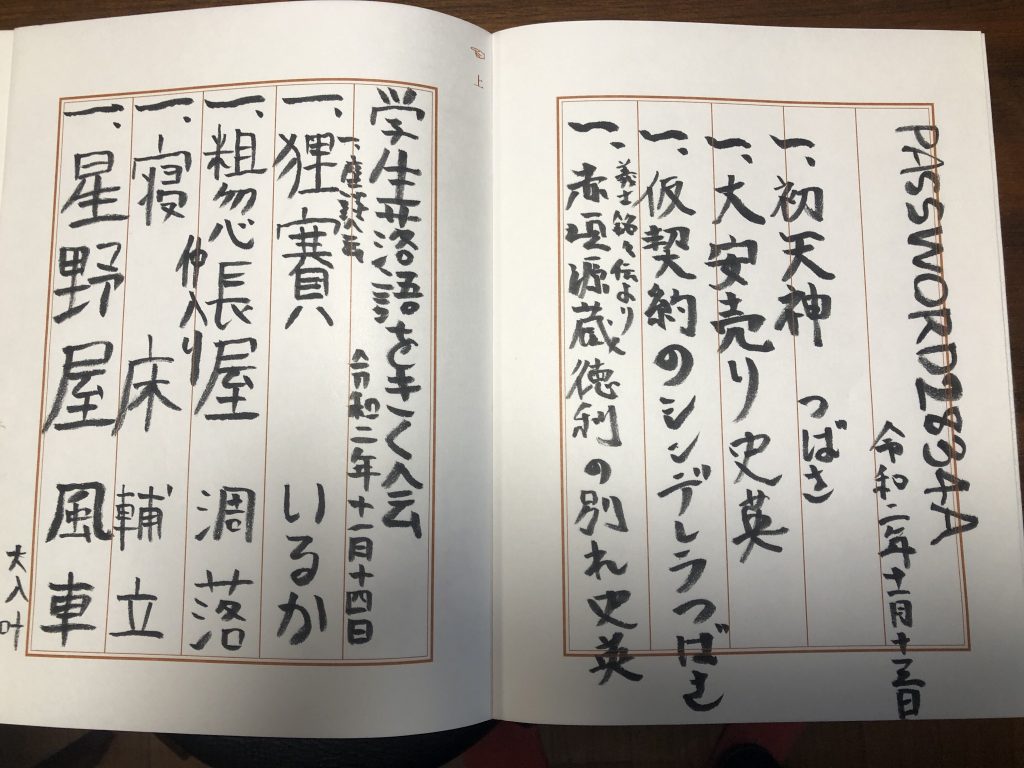 PASSWORD2834A
令和二年十一月十三日
一、初天神 つばさ
一、大安売り 史英
一、仮契約のシンデレラ つばさ
義士銘々伝より
一、赤垣源蔵徳利の別れ 史英
上
学生落語をきく会
令和二年十一月十四日
一、狸賽 いるか
一、粗忽長屋 凋落
仲入り
一、寝床 輔立
一、星野屋 風車
大入叶